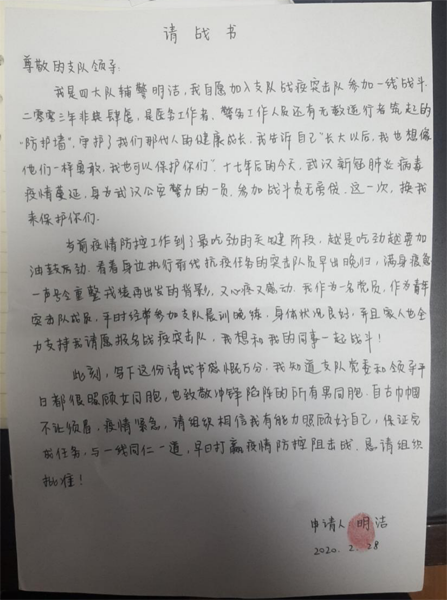 请战书
尊敬的支队领导:
我是四大队辅警明洁,我自愿加入支队战疫突击队参加一线战斗.
二零零三年非典肆虐,是医务工作者、警务工作人员还有无数逆行者筑起的
“防护墙”,守护了我们那代人的健康成长,我告诉自己“长大以后,我也想像
他们一样勇敢,我也可以保护你们”.十七年后的今天,武汉新冠肺炎病毒
疫情蔓延,身为武汉公安警力的一员,参加战斗责无旁贷。这一次,换我
来保护你们。
当前疫情防控工作到了最吃劲的关键阶段,越是吃劲越要加
油鼓劲.看着身边执行前代抗疫任务的突击队员早出晚归,满身疲惫
一声号令重整戎装再出发的背影,又心疼又感动,我作为一名党员,作为青年
突击队成员,平时经常参加支队晨训晚练,身体状况良好,并且家人也全
力支持我请愿报名战疫突击队,我想和我的同事一起战斗!
此刻,写下这份请战书感慨万分,我知道支队党委和领导平
日都很照顾女同胞,也致敬冲锋陷阵的所有男同胞.自古巾帼
不让须眉,疫情紧急,请组织相信我有能力照顾好自己,保证完
成任务,与一线同仁一道,早日打赢疫情防控阻击战.恳请组织
批准!
申请人 明洁
2020.2.28